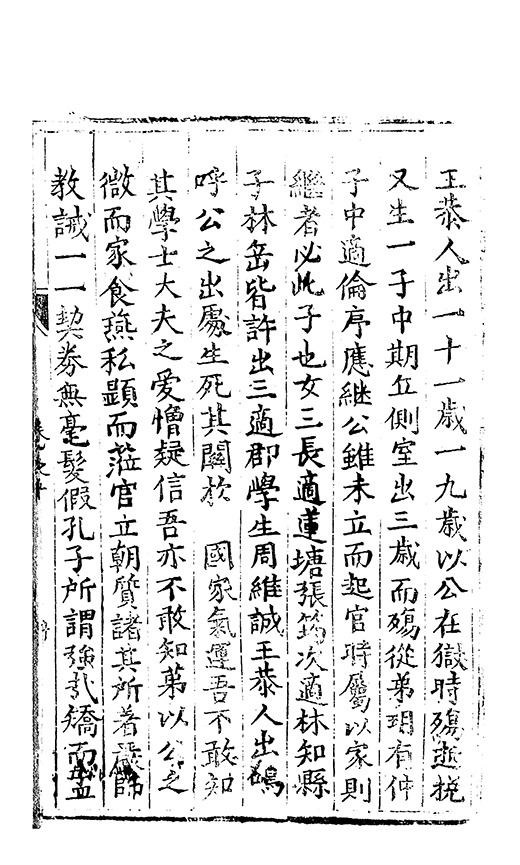 王恭人出一十一歲一九歲以公在獄時殤逝挽
又生一子中期丘側室出三歲而殤從弟玥有仲
子中適倫序應繼公雖未立而起官時屬以家則
繼者必此子也女三長適蓮塘張筠次適林知縣
子林岳皆許出三適郡學生周維誠王恭人出嗚
呼公之出處生死其關於 國家氣運吾不敢知
其學士大夫之愛憎疑信吾亦不敢知第以公之
微而家食燕私顯而蒞官立朝質諸其所著嚴師
教誡一一契券無毫髮假孔子所謂強哉矯而盖